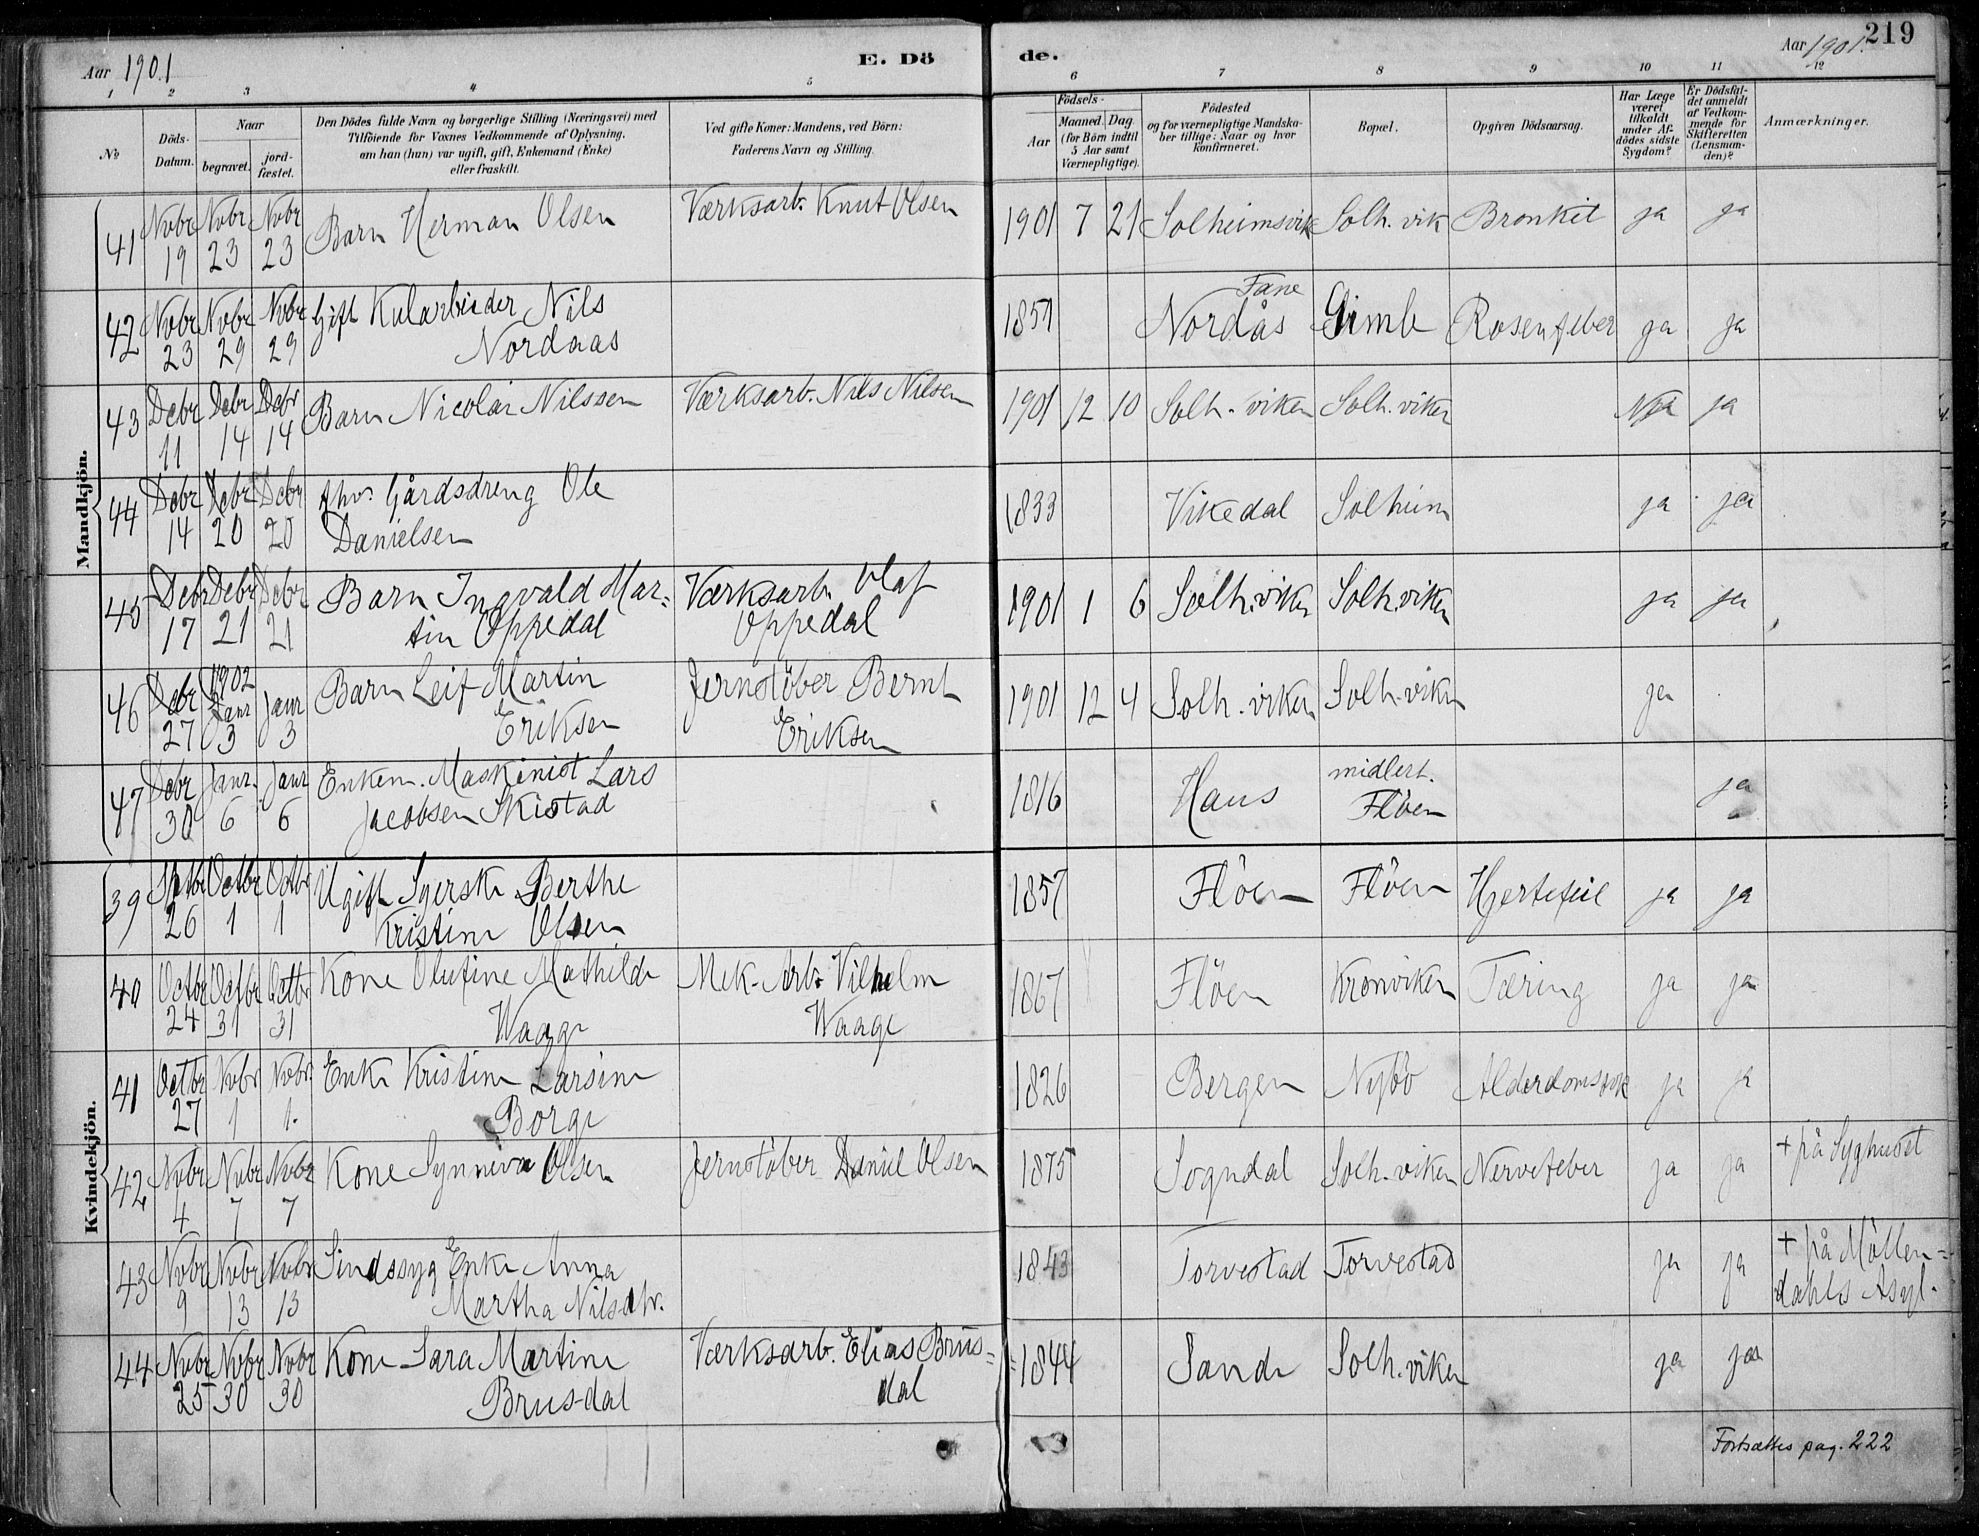 Aar 1901
E. Dö
de.
Aar 1901.
219
1 2 3 4 5 6 7 8 9 10 11 12
No
Döds-Datum.
Naar
begravet.
jord-fæstet.
Den Dödes fulde Navn og borgerlige Stilling (Næringsvei) med
Tilföiende for Voxnes Vedkommende af Oplysning,
om han (hun) var ugift, gift, Enkemand (Enke)
eller fraskilt.
Ved gifte Koner: Mandens, ved Börn:
Faderens Navn og Stilling.
Födsels-
Aar
Maaned. Dag
(for Börn indtil
5 Aar samt
Værnepligtige).
Födested
og for værnepligtige Mandska-
ber tillige: Naar og hvor
konfirmeret.
Bopæl.
Opgiven Dödsaarsag.
Har Læge
været
tilkaldt
under Af-
dödes sidste
Sygdom?
Er Dödsfal-
det anmeldt
af Vedkom-
mende for
Skifteretten
(Lensman-
den)?
Anmærkninger.
Mandkjön.
41 Novbr 19 Novbr 23 Novbr 23 Barn Herman Olsen Værksarb. Knut Olsen 1901 7 21 Solheimsvik Solh. vik Bronkit ja ja
42 Novbr 23 Novbr 29 Novbr 29 Gift Kularbeider Nils
Nordaas 1857 Fane
Nordås Gimle Rosenfeber ja ja
43 Debr 11 Debr 14 Debr 14 Barn Nicolai Nilssen Værksarb. Nils Nilsen 1901 12 10 Solh. viken Solh. viken ja
44 Debr 14 Debr 20 Debr 20 fhv. Gårdsdreng Ole
Danielsen 1833 Vikedal Solheim ja ja
45 Debr 17 Debr 21 Debr 21 Barn Ingvald Mar-
tin Oppedal Værksarb. Olaf
Oppedal 1901 1 6 Solh. viken Solh. viken ja ja
46 Debr 27 1902 Janr 3 Janr 3 Barn Leif Martin
Eriksen Jernstöber Bernt
Eriksen 1901 12 4 Solh. viken Solh. viken ja
47 Debr 30 Janr. 6 Janr 6 Enkem. Maskinist Lars
Jacobsen Skistad 1816 Haus midlert.
Flöen ja
Kvindekjön.
39 Septbr 26 Octbr 1 Octbr 1 Ugift Syerske Berthe
Kristine Olsen 1857 Flöen Flöen Hjertefeil ja ja
40 Octbr 24 Octbr 31 Octbr 31 Kone Olufine Mathilde
Waage Mek. Arb. Vilhelm
Waage 1867 Flöen Kronviken Tæring ja ja
41 Octbr 27 Novbr 1 Novbr. 1. Enke Kristine Larsine
Borge 1826 Bergen Nybö ja ja
42 Novbr 4 Novbr 7 Novbr 7 Kone Synneva Olsen Jernstöber Daniel Olsen 1875 Sogndal Solh. viken Nervefeber ja ja + på Syghuset
43 Novbr 9 Novbr 13 Novbr 13 Sindssyg Enke Anna
Martha Nilsdtr. 1843 Torvestad Torvestad ja ja + på Möllen-
dahls Asyl.
44 Novbr 25 Novbr 30 Novbr 30 Kone Sara Martine
Brusdal Værksarb. Elias Brus-
dal 1844 Sande Solh. viken ja ja
Fortsættes pag. 222